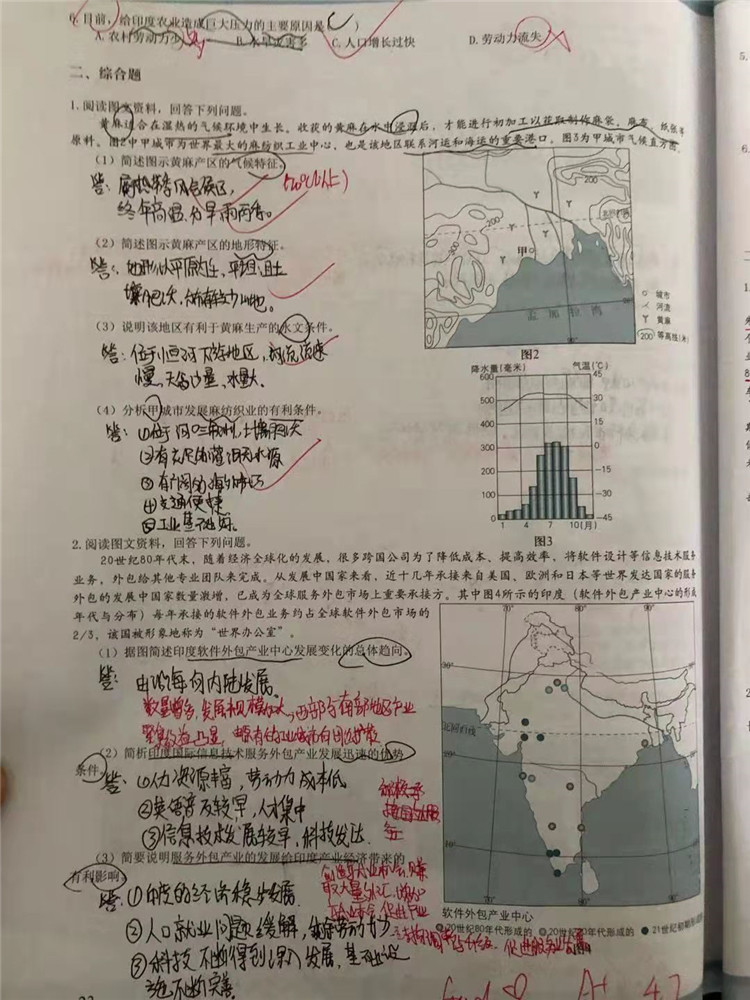 6.目前,给印度农业造成巨大压力的主要原因是( )
A.农村劳动力少 B.水旱灾害多 C.人口增长过快 D.劳动力流失
二、综合题
1.阅读图文资料,回答下列问题。
黄麻适合在湿热的气候环境中生长。收获的黄麻在水中浸泡后,才能进行初加工以获取制作麻袋、麻布、纸张等
原料。图2中甲城市为世界最大的麻纺织工业中心,也是该地区联系河运和海运的重要港口。图3为甲城市气候直方图。
(1)简述图示黄麻产区的气候特征。
答:属热带季风气候区,
终年高温,分旱雨两季。
(2)简述图示黄麻产区的地形特征。
答:地形以平原为主,平坦,且土
壤肥沃,
(3)说明该地区有利于黄麻生产的水文条件。
答:位于恒河下游地区,河流流速
慢,水量大.
(4)分析甲城市发展麻纺织业的有利条件。
答:①位于河口三角洲,土壤肥沃
②有充足的灌溉水源
③有广阔的海外市场
④交通便捷
⑤工业基础好.
200
200
甲
孟加拉湾
90°
城市
河流
黄麻
200 等高线(米)
图2
降水量(毫米) 气温(℃)
600 45
500 30
400 15
300 0
200 -15
100 -30
0 -45
1 4 7 10(月)
图3
2.阅读图文资料,回答下列问题。
20世纪80年代末,随着经济全球化的发展,很多跨国公司为了降低成本、提高效率,将软件设计等信息技术服务
业务,外包给其他专业团队来完成。从发展中国家来看,近十几年承接来自美国、欧洲和日本等世界发达国家的服务
外包的发展中国家数量激增,已成为全球服务外包市场上重要承接方。其中图4所示的印度(软件外包产业中心的形成
年代与分布)每年承接的软件外包业务约占全球软件外包市场的
2/3,该国被形象地称为“世界办公室”。
(1)据图简述印度软件外包产业中心发展变化的总体趋向。
答:由沿海向内陆发展.
数量增多,发展规模扩大,西部与南部地区产业
(2)简析印度国际信息技术服务外包产业发展迅速的优势
条件。
答:①人力资源丰富,劳动力成本低
②英语普及较早,人才集中
③信息技术发展较早,科技发达.
(3)简要说明服务外包产业的发展给印度产业经济带来的
有利影响。
答:①印度的经济稳步发展.
②人口就业问题缓解,
③科技不断得到深入发展,基础设
施不断完善.
70° 80° 90°
北回归线
20°
10°
70° 80°
软件外包产业中心
20世纪80年代形成的 20世纪90年代形成的 21世纪初期形成的
Good A+